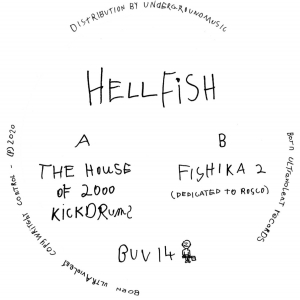 DISTRIBUTION BY UNDERGROUNDMUSIC
HELLFiSH
A
THE HOUSE
OF 2000
KiCKDRums
B
FiSHiKA 2
(DEDICATED TO ROSCO)
BUV 14
BORN ULTRAVIOLENT RECORDS
BORN ULTRAVIOLENT COPYWRIGHT CONTROL - (P) 2020